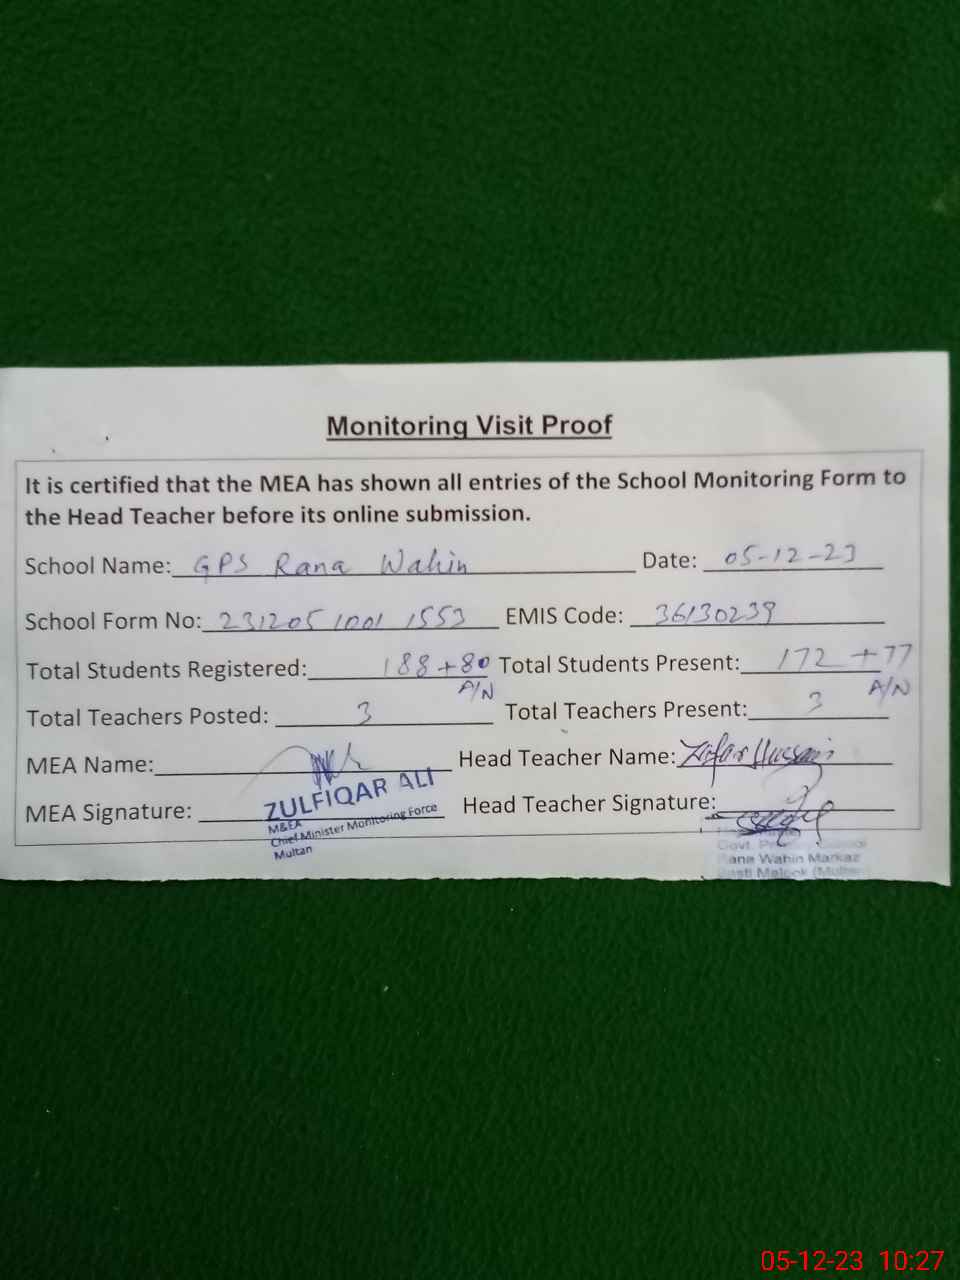 Monitoring Visit Proof
It is certified that the MEA has shown all entries of the School Monitoring Form to
the Head Teacher before its online submission.
School Name: GPS Rana Wahin Date: 05-12-23
School Form No: 231205 1001 1553 EMIS Code: 36130239
Total Students Registered: 188+80 Total Students Present: 172 +77
A/N A/N
Total Teachers Posted: 3 Total Teachers Present: 3
MEA Name: Head Teacher Name: Zafar Hussain
MEA Signature: Head Teacher Signature:
ZULFIQAR ALI
M&EA
Chief Minister Monitoring Force
Multan
Govt.
Rana Wahin Markaz
Basti Malook (Multan)
05-12-23 10:27